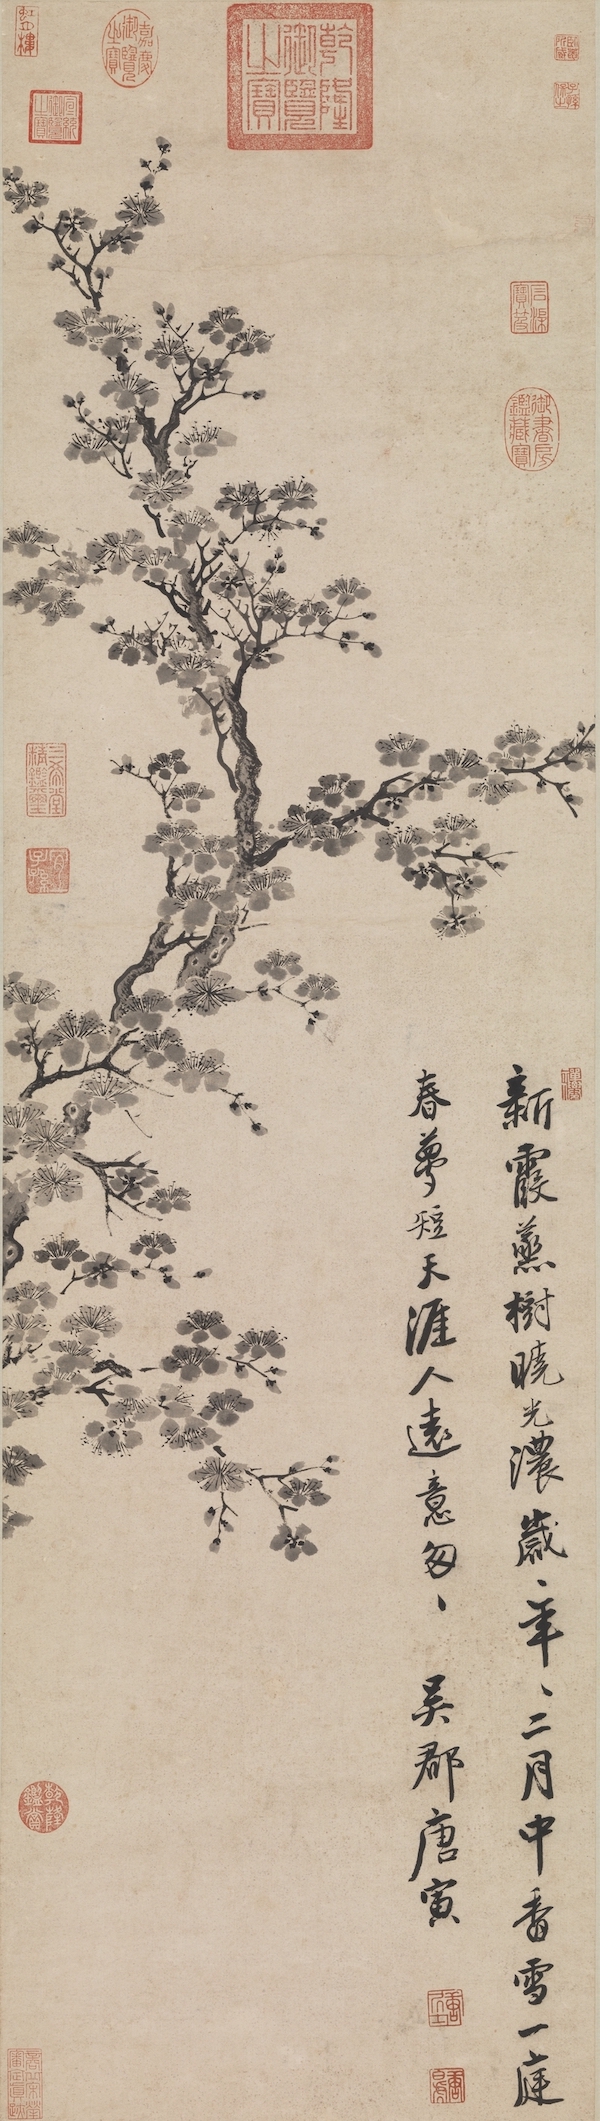 乾隆御覽之寶
嘉慶御覽之寶
宣統御覽之寶
石渠寶笈
御書房鑑藏寶
三希堂精鑑璽
宜子孫
新霞蒸樹曉光濃歲〻年〻二月中香雪一庭
春夢短天涯人遠意匆〻 吳郡唐寅
乾隆鑑賞